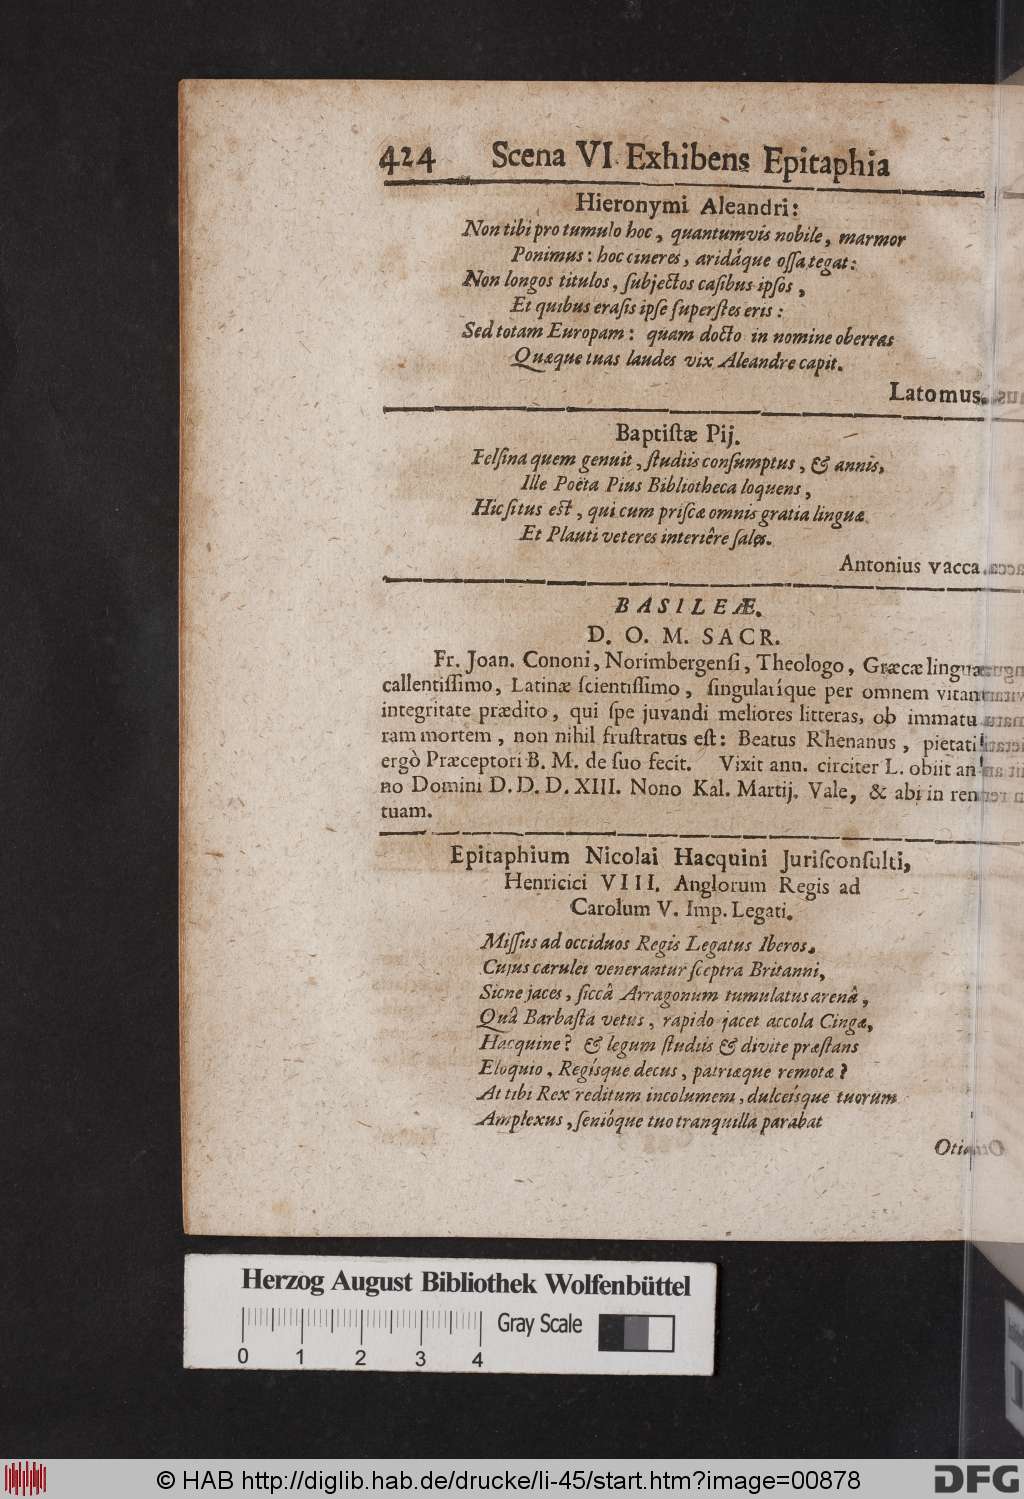 424 Scena VI Exhibens Epitaphia
Hieronymi Aleandri:
Non tibi pro tumulo hoc, quantumvis nobile, marmor
Ponimus: hoc cineres, aridáque oſſa tegat:
Non longos titulos, ſubjectos caſibus ipſos,
Et quibus eraſis ipſe ſuperſtes eris:
Sed totam Europam: quam docto in nomine oberras
Quæque tuas laudes vix Aleandre capit.
Latomus.
Baptiſtæ Pij.
Felſina quem genuit, ſtudiis conſumptus, & annis,
Ille Poëta Pius Bibliotheca loquens,
Hic ſitus eſt, qui cum priſcæ omnis gratia linguæ
Et Plauti veteres interiêre ſales.
Antonius vacca.
BASILEÆ.
D. O. M. SACR.
Fr. Joan. Cononi, Norimbergenſi, Theologo, Græcæ linguæ
callentiſſimo, Latinæ ſcientiſſimo, ſingularíque per omnem vitam
integritate prædito, qui ſpe juvandi meliores litteras, ob immatu
ram mortem, non nihil fruſtratus eſt: Beatus Rhenanus, pietati
ergò Præceptori B. M. de ſuo fecit. Vixit ann. circiter L. obiit an
no Domini D. D. D. XIII. Nono Kal. Martij. Vale, & abi in rem
tuam.
Epitaphium Nicolai Hacquini Juriſconſulti,
Henricici VIII. Anglorum Regis ad
Carolum V. Imp. Legati.
Miſſus ad occiduos Regis Legatus Iberos,
Cujus cærulei venerantur ſceptra Britanni,
Sicne jaces, ſiccâ Arragonum tumulatus arenâ,
Quâ Barbaſta vetus, rapido jacet accola Cingæ,
Hacquine? & legum ſtudiis & divite præſtans
Eloquio, Regíſque decus, patriæque remotæ?
At tibi Rex reditum incolumem, dulceíſque tuorum
Amplexus, ſenióque tuo tranquilla parabat
Otia
Herzog August Bibliothek Wolfenbüttel
Gray Scale
0 1 2 3 4
© HAB http://diglib.hab.de/drucke/li-45/start.htm?image=00878
DFG